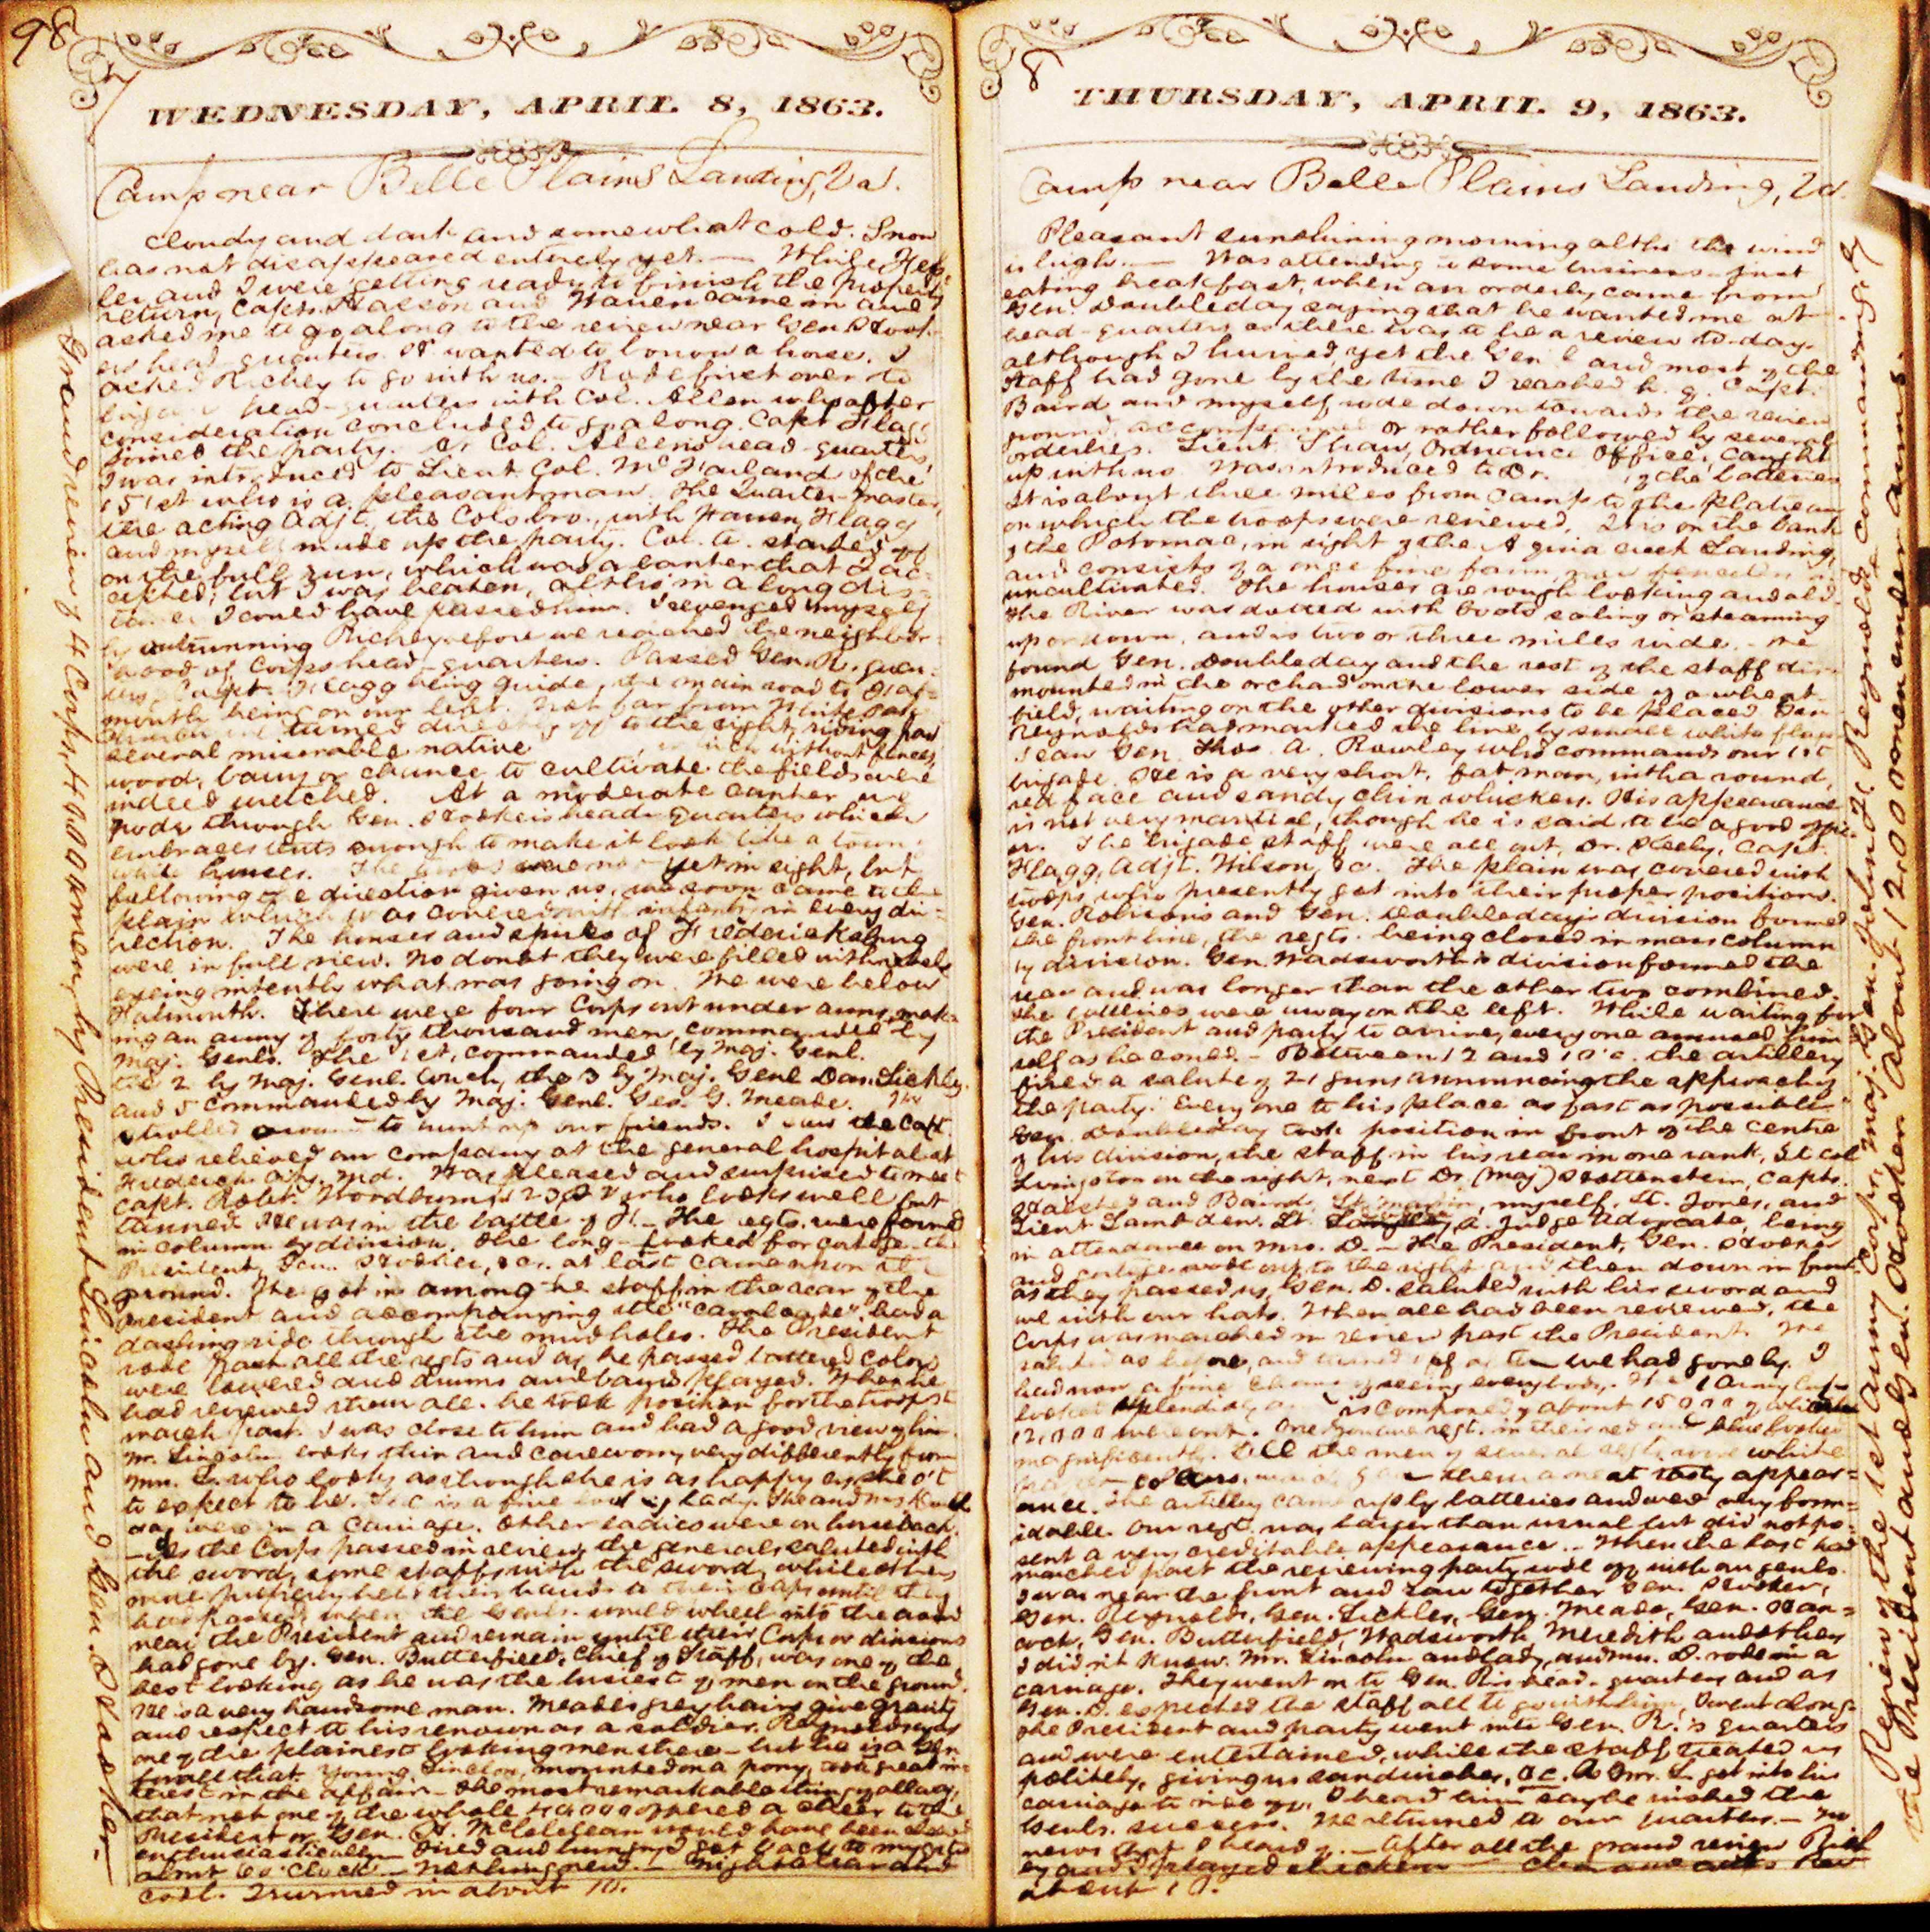 98
7
WEDNESDAY, APRIL 8, 1863.
Camp near Belle Plains Landing, Va.
Cloudy and dark and somewhat cold. Snow
has not disappeared entirely yet. — While Hef-
ler and I were getting ready to finish the property
return, Capts. and Haven came in and
asked me to go along to the review near Gen. Hook-
ers head-quarters. H wanted to borrow a horse. I
asked Richey to go with us. — Rode first over to
brigade head-quarters with Col. Allen who after
consideration concluded to go along. Capt Flagg
joined the party. At Col. Allen's head-quarters
I was introduced to Lieut. Col. McFarland of the
151st who is a pleasant man. The Quarter-master,
the acting Adjt., the Cols bro., with Haven, Flagg
and myself made up the party. Col. A. started off
on the full run, which was a banter that I ac-
cepted; but I was beaten, altho' in a long dis-
tance I could have passed him. I revenged myself
by outrunning Richey before we reached the neighbor-
hood of Corps head-quarters. Passed Gen. R's quar-
ters, Capt. Flagg being guide, the main road to Fal-
mouth being on our left. Not far from White Oak
Church we turned directly off to the right, riding past
several miserable native which without fences,
wood, barns or chance to cultivate the fields were
indeed wretched. At a moderate canter we
rode through Gen. Hooker's head-quarters which
embraces tents enough to make it look like a town;
white houses. The troops were not yet in sight, but
following the direction given us, we soon came to the
plain which was covered with infantry in every di-
rection. The houses and spires of Fredericksburg
were in full view. No doubt they were filled with rebels
eyeing intently what was going on. We were below
Falmouth. There were four Corps out under arms, mak-
ing an army of forty thousand men, commanded by
Maj. Genls. The 1st, commanded by Maj. Genl.
the 2 by Maj. Genl. Couch, the 3 by Maj. Genl Dan. Sickles,
and 5 commanded by Maj. Genl. Geo. G. Meade. We
strolled around to hunt up our friends. I saw the Capt
who relieved our company at the general hospital at
Frederick City, Md. Was pleased and surprised to meet
Capt. Robt. Woodburn, 123 P.V. who looks well but
tanned. He was in the battle of F. — The regts. were formed
in column by division. The long-looked for cortege — the
President, Gen. Hooker, &c. at last came upon the
ground. We got in among the staff in the rear of the
President and accompanying the "cavalcade" had a
dashing ride through the mud holes. The President
rode past all the regts and as he passed battered colors
were lowered and drums and bands played. When he
had reviewed them all he took position for the troops to
march past. I was close to him and had a good view of him.
Mr. Lincoln looks thin and careworn, very differently from
Mrs. L. who looks as though she is as happy as she o't
to expect to be. She is a fine looking lady. She and Mrs
were in a carriage. Other ladies were on horseback.
— As the Corps passed in review the generals saluted with
the sword, some staffs with the sword, while others
more properly held their hands to their caps until they
had passed, when the Genls. would wheel into the area
near the President and remain until their Corps or divisions
had gone by. Gen. Butterfield, Chief of Staff, was one of the
best looking as he was the busiest of men on the ground.
He is a very handsome man. Meade's grey hairs give gravity
and respect to his renown as a soldier. Reynolds was
one of the plainest looking men there — but he is a Gen
for all that. Young Lincoln, mounted on a pony, took great in-
terest in the affair. — The most remarkable thing of all was,
that not one of the whole 40,000 offered a cheer to the
President or Gen. H. McClellan would have been cheered
enthusiastically. Tired and hungry I got back to my
about 6 o'clock. — Nothing new. — Night clear and
cool. Turned in about 10.
Grand review of 4 Corps, 40000 men, by President Lincoln and Gen. Hooker.
8
THURSDAY, APRIL 9, 1863.
Camp near Belle Plains Landing, Va.
Pleasant sunshining morning altho the wind
is high. — Was attending to some business just
eating breakfast, when an orderly came from
Gen. Doubleday saying that he wanted me at
head-quarters as there was to be a review to-day.
although I hurried, yet the Gen'l and most of the
Staff had gone by the time I reached h. q. Capt.
Baird and myself rode down towards the review
ground, accompanied or rather followed by several
orderlies. Lieut. Shaw, Ordnance Officer, caught
up with us. Was introduced to Dr. of the batteries
It is about three miles from camp to the plateau
on which the troops were reviewed. It is on the bank
of the Potomac, in sight of the Aquia creek Landing,
and consists of a once fine farm, now fenceless and
uncultivated. The houses are rough looking and old
The River was dotted with boats sailing or steaming
up or down, and is two or three miles wide. We
found Gen. Doubleday and the rest of the staff dis-
mounted in the orchard on the lower side of a wheat
field, waiting on the other divisions to be placed. Gen
Reynolds had marked the line by small white flags
I saw Gen. Thos. A. Rowley who commands our 1st
brigade. He is a very short, fat man, with a round,
red face and sandy chin whiskers. His appearance
is not very martial, though he is said to be a good offi-
cer. The brigade staff were all out, Dr. , Capt.
Flagg, Adjt. Wilson, &c. The plain was covered with
troops, who presently got into their proper positions.
Gen. Robinson's and Gen. Doubleday's division formed
the front line, the regts. being closed in mass column
by division. Gen. Wadsworth's division formed the
rear and was longer than the other two combined.
The batteries were away on the left. While waiting for
the President and party to arrive, every one amused him-
self as he could. — Between 12 and 1 o'c. the artillery
fired a salute of 21 guns announcing the approach of
the party. Every one to his place as fast as possible
Gen. Doubleday took position in front of the centre
of his division, the staff in his rear in one rank, Lt. Col
Livingston on the right, next Dr. (Maj) Hottenstein, Capts.
Halsted and Baird, Lt. Martin, myself, Lt. Jones, and
Lieut Lambden. Lt. a. Judge Advocate, being
in attendance on Mrs. D. — The President, Gen. Hooker
and cortege rode out to the right and then down in front
as they passed us, Gen. D. saluted with his sword and
we with our hats. When all had been reviewed, the
Corps was marched in review past the President. We
saluted as before, and turned off after we had gone by. I
had now a fine chance of seeing everybody. The 1 Army Corps
looked splendidly and is composed of about 15000 of which
12,000 were out. One Zouave regt. in their red and blue looked
magnificently. All the men of several regts. wore white
paper collars, which gave them a neat tasty appear-
ance. The artillery came up by batteries and were very form-
idable. Our regt. was larger than usual but did not pre-
sent a very creditable appearance. — When the last had
marched past the reviewing party rode off with our genls.
I was near the front and saw together Gen. Hooker,
Gen. Reynolds, Gen. Sickles, Gen. Meade, Gen. Han-
cock, Gen. Butterfield, Wadsworth, Meredith and others
I didn't know. Mr. Lincoln and lady, and Mrs. D. rode in a
carriage. They went on to Gen. R's head-quarters and as
Gen. D. expected the staff all to go with him, I went along.
The President and party went into Gen. R.'s quarters
and were entertained, while the staff treated us
politely, giving us sandwiches, &c. As Mr. L. got into his
carriage to ride off, I heard him say he wished the
Genls. success. We returned to our quarters. — No
news that I heard of. — After all the grand review Rich-
ey and I played checkers — Clear and
about 10.
Review of the 1st Army Corps, Maj. Gen. John F. Reynolds commanding, by
the President and Gen. Hooker. About 12,000 men under arms.